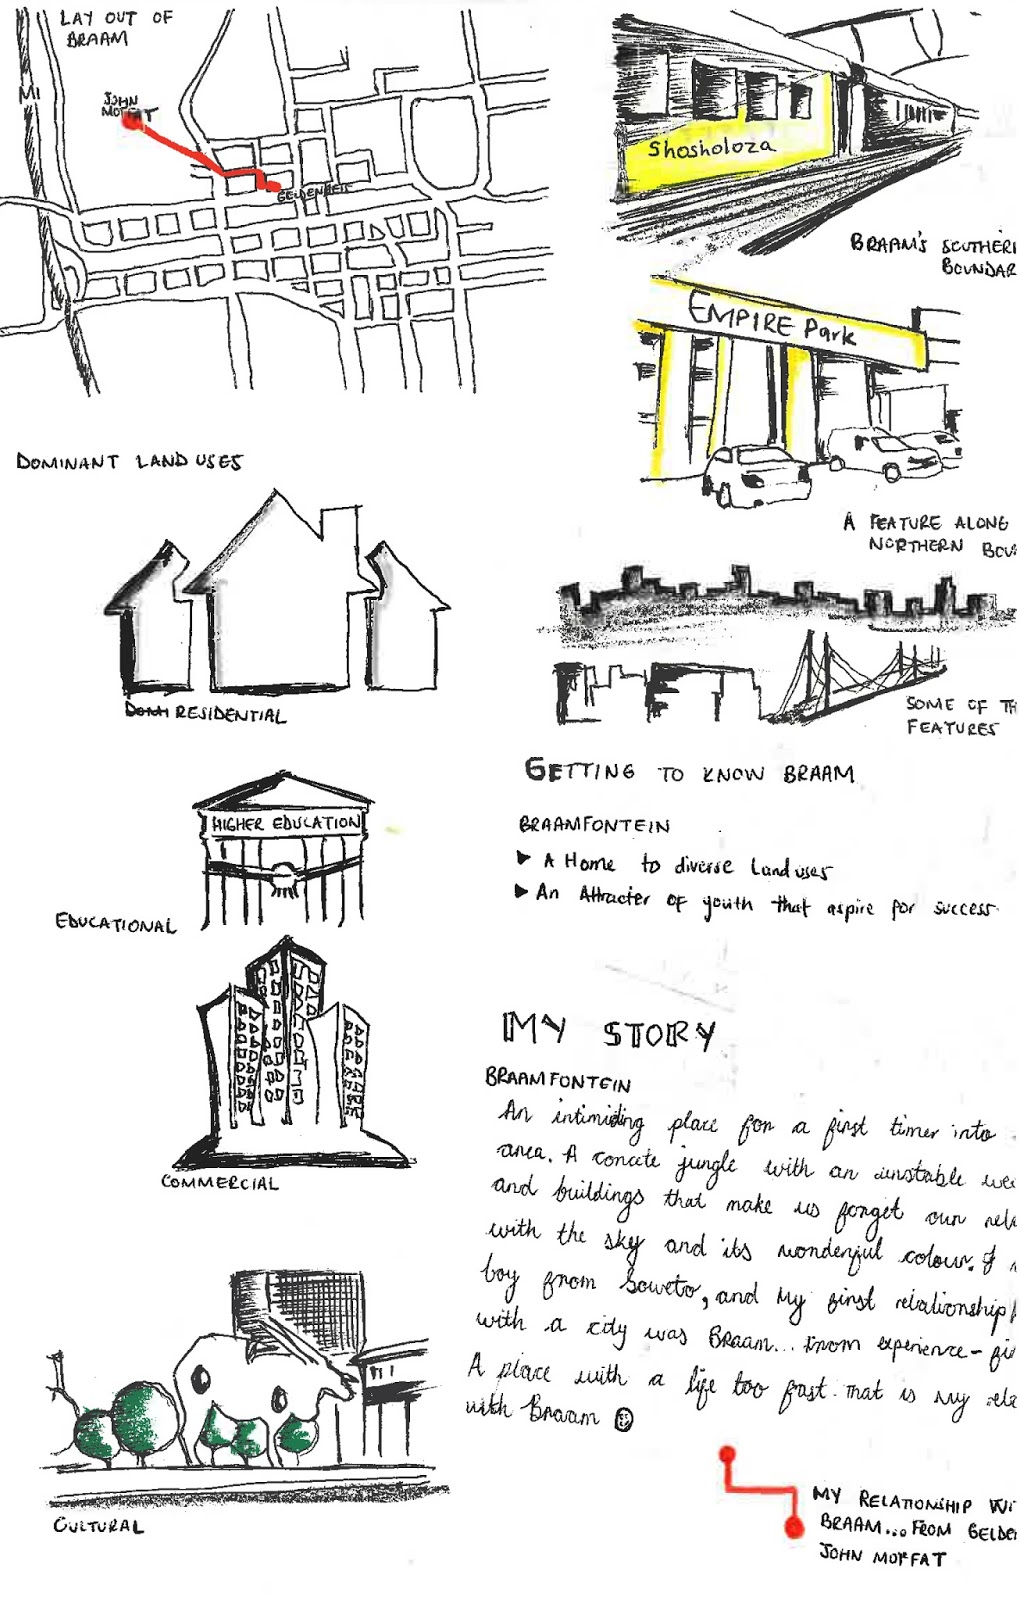 LAY OUT OF
BRAAM
M1
JOHN
MOFFAT
GELDENHUIS
Shosholoza
BRAAM'S SOUTHERN
BOUNDAR
EMPIRE Park
A FEATURE ALONG
NORTHERN BOU
DOMINANT LAND USES
RESIDENTIAL
SOME OF TH
FEATURES
GETTING TO KNOW BRAAM
BRAAMFONTEIN
▶ A Home to diverse Land uses
▶ An Attracter of youth that aspire for success
HIGHER EDUCATION
EDUCATIONAL
COMMERCIAL
CULTURAL
MY STORY
BRAAMFONTEIN
An intimiding place for a first timer into
area. A concete jungle with an unstable wea
and buildings that make us forget our rela
with the sky and its wonderful colour. I
boy from Soweto, and My first relationship
with a city was Braam... from experience - fi
A place with a life too fast. that is my rela
with Braam
MY RELATIONSHIP WI
BRAAM... FROM GELDE
JOHN MOFFAT